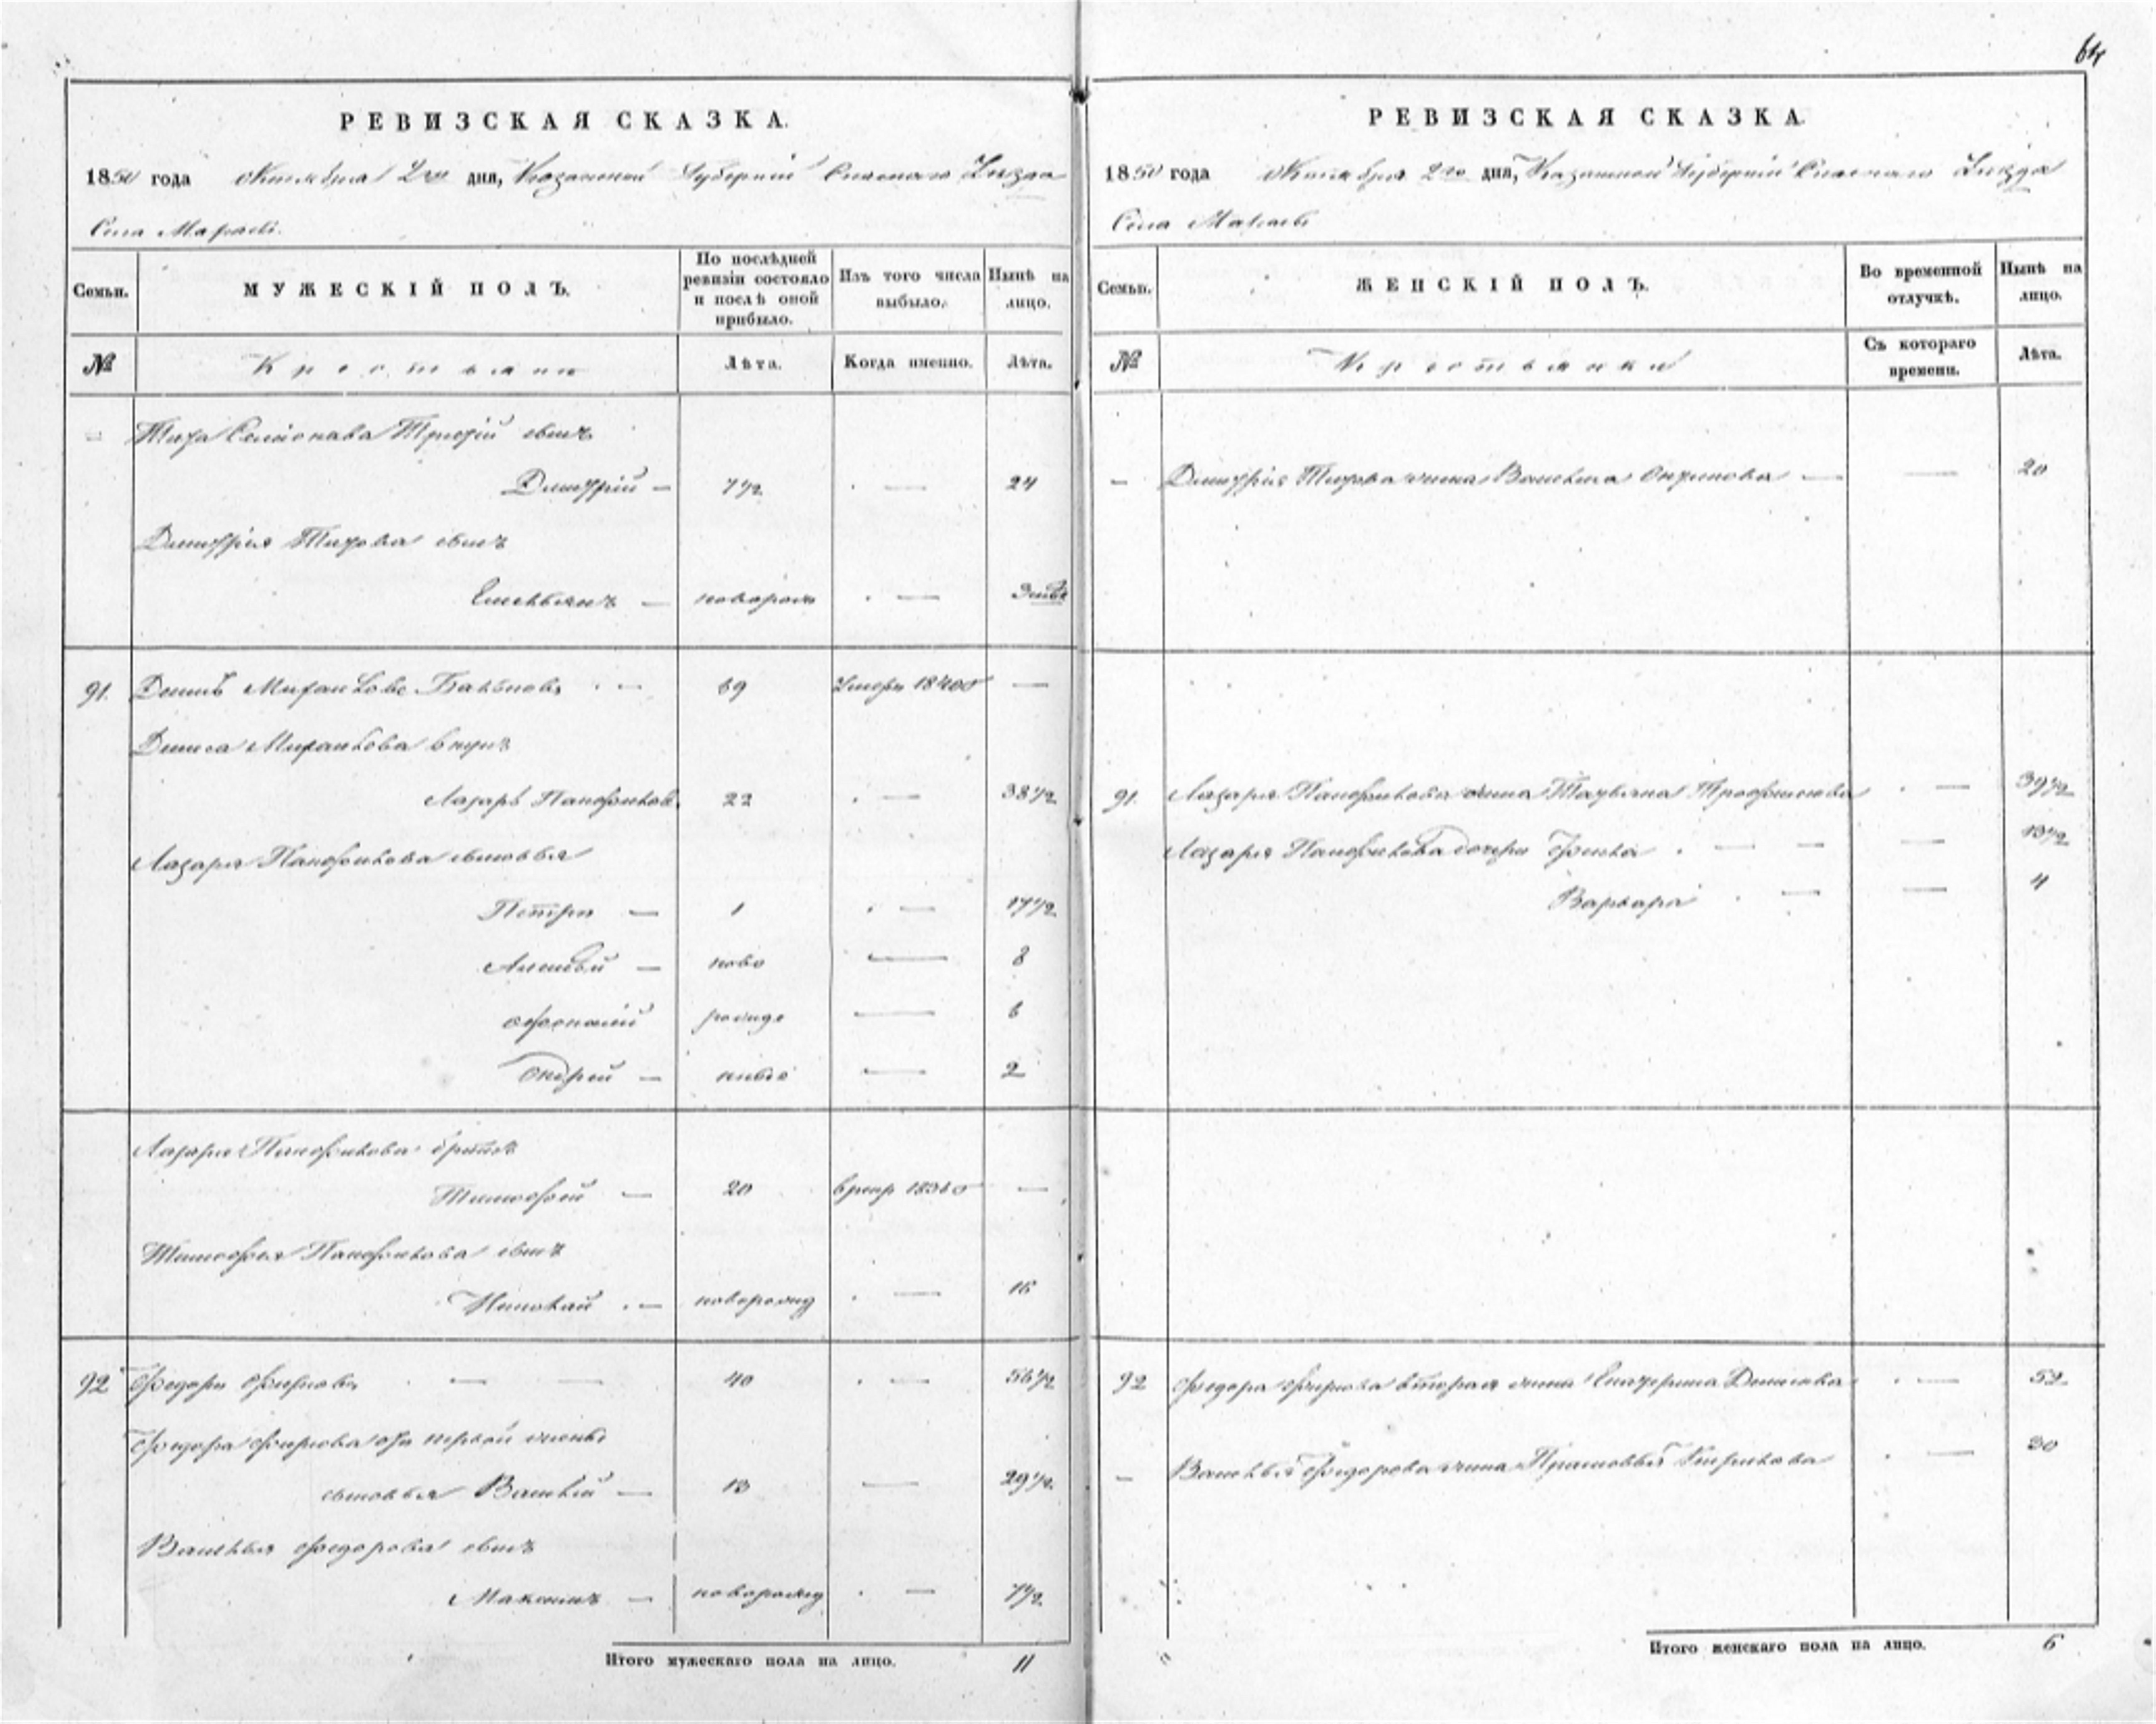 64
РЕВИЗСКАЯ СКАЗКА.
1850 года Октября 2го дня, Казанской Губернии Спаскаго Уезда
Села Марасы
Семьи.
МУЖЕСКІЙ ПОЛЪ.
По послѣдней ревизіи состояло и послѣ оной прибыло.
Изъ того числа выбыло.
Нынѣ на лицо.
№
Крестьяне
Лѣта.
Когда именно.
Лѣта.
Тита Семіонава Третій сынъ
Дмитрій — 7½ — 24
Дмитрія Титова сынъ
Емельянъ — новорож —
91. Денисъ 69 Умеръ 1840 —
Дениса внукъ
Лазарь Панфилов. 22 — 38½
Лазаря Панфилова сыновья
Петръ — 1 — 17½
Алексѣй — ново — 8
Афонасій рожде — 6
Ондрей — нные — 2
Лазаря Панфилова братъ
Тимофей — 20 —
Тимофея Панфилова сынъ
Николай — новорожд — 16
92 Федоръ Фирсовъ — 40 — 56½
Федора Фирсова отъ первой жены
сыновья Василій — 13 — 29½
Василья Федорова сынъ
Максимъ — новорожд — 7½
Итого мужескаго пола на лицо. 11
РЕВИЗСКАЯ СКАЗКА.
1850 года Октября 2го дня, Казанской Губерніи Спаскаго Уезда
Села Марасы
Семьи.
ЖЕНСКІЙ ПОЛЪ.
Во временной отлучкѣ.
Нынѣ на лицо.
№
Крестьянки
Съ котораго времени.
Лѣта.
— Дмитрія Титова жена Васильева — 20
91. Лазаря Панфилова жена Татьяна Трофимова — 39½
Лазаря Панфилова дочери — 13½
Варвара — 4
92 Федора Фирсова вторая жена Екатерина Денисова — 52
— Василья Федорова жена Прасковья Кирилова — 30
Итого женскаго пола на лицо. 6